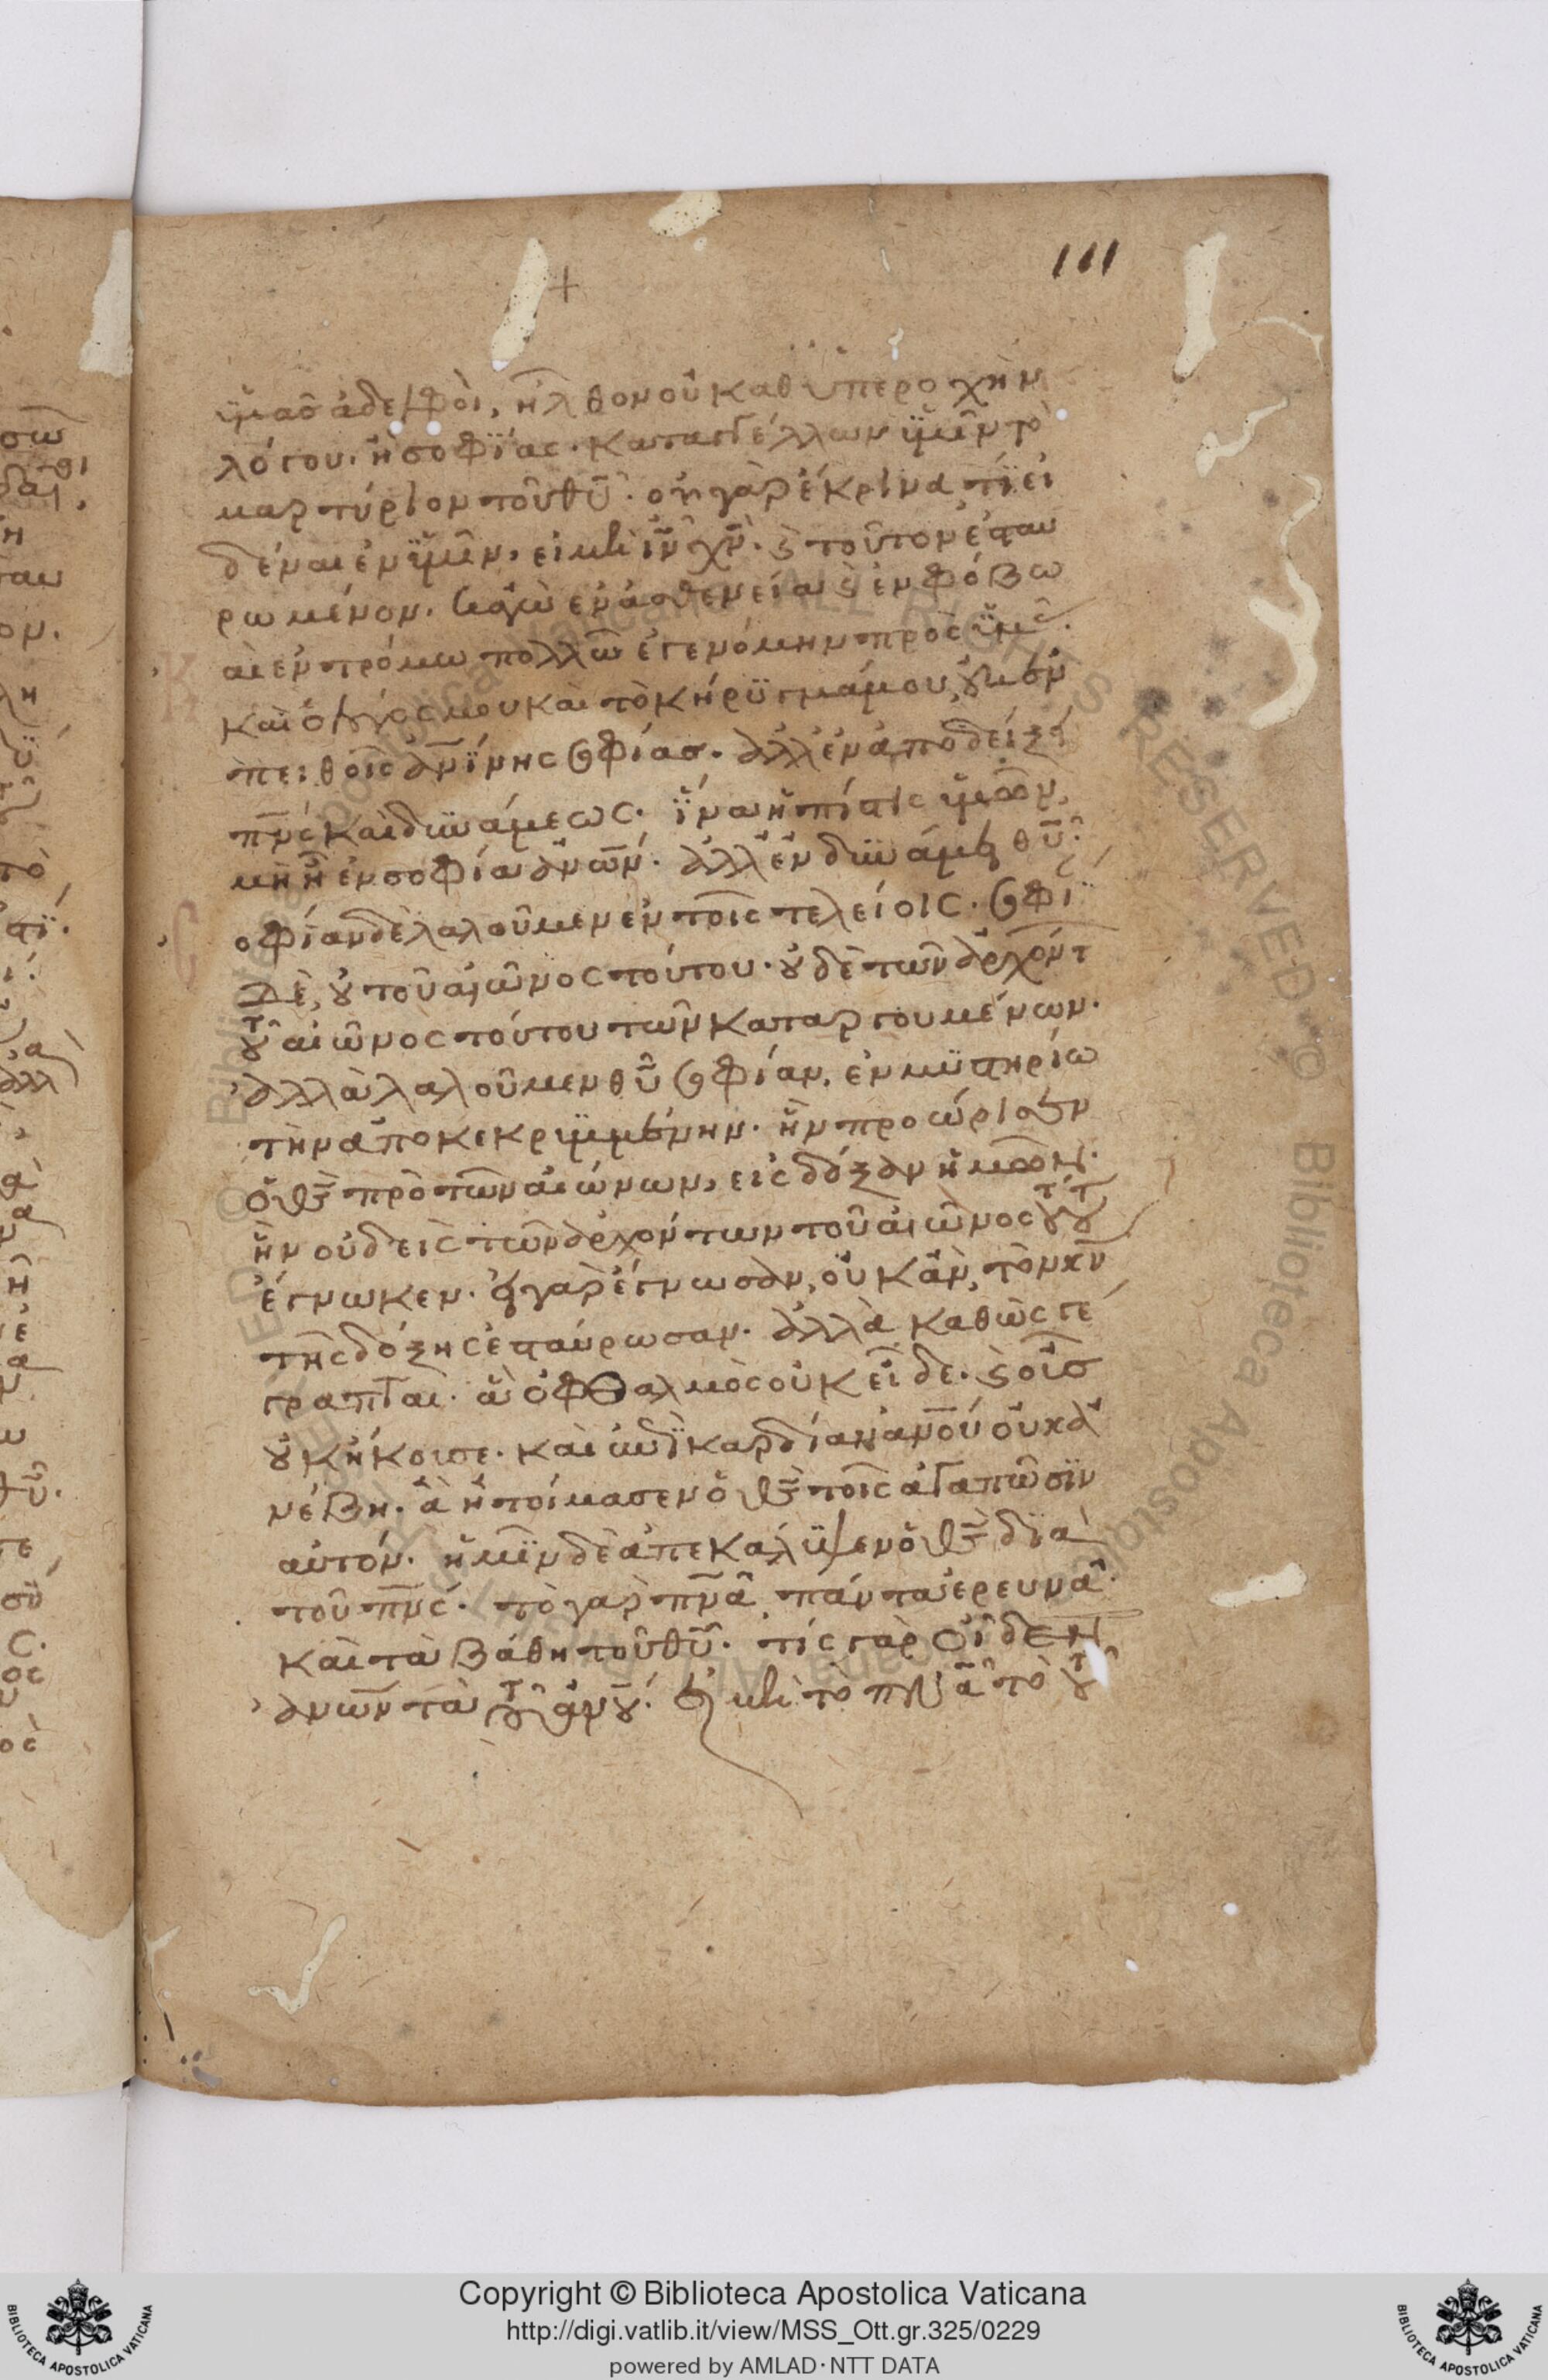 111
+
ὑμᾶς ἀδελφοὶ, ἦλθον οὐ καθ ὑπεροχὴν
λόγου. ἢ σοφΐας. καταγγέλλων ὑμῖν τὸ
μαρτύριον τοῦ θῦ. οὐ γὰρ ἔκρινα τΐ εἰ
δέναι ἐν ὑμῖν, εἰ μὴ ἰν χν. ϗ τοῦτον ἐσταυ
ρωμένον. κἀγὼ ἐν ἀσθενεία ϗ ἐν φόβω
αι ἐν τρόμω πολλῶ ἐγενόμην πρὸς ὑμᾶς.
καὶ ὁ λόγος μου καὶ τὸ κήρϋγμά μου, οὐκ ἐν
πειθοῖς ἀνΐνης σοφίασ. ἀλλ ἐν ἀποδείξει
πνς καὶ δϋνάμεως. ἵνα ἡ πίστις ὑμῶν,
μὴ ῆ ἐν σοφία ἀνων. ἀλλ ἐν δϋνάμει θῦ.
οφίαν δὲ λαλοῦμεν ἐν τοῖς τελείοις. σοφΐ
δὲ, οὐ τοῦ αἰῶνος τούτου. οὐδὲ τῶν ἀρχόντ
τοῦ αἰῶνος τούτου τῶν καταργουμένων.
ἀλλὰ λαλοῦμεν θῦ σοφίαν, ἐν μϋστηρίω
τὴν ἀποκεκρϋμμένην. ἣν προώρισεν
ὁ θς πρὸ τῶν αἰώνων, εἰς δόξαν ἡμῶν.
ἣν οὐδεὶς τῶν ἀρχόντων τοῦ αἰῶνος τούτου
ἔγνωκεν. εἰ γὰρ ἔγνωσαν, οὐκ ἂν τὸν κν
τῆς δόξης ἐσταύρωσαν. ἀλλὰ καθὼς γέ
γραπται. ἃ ὀφθαλμὸς οὐκ εἶδε. ϗ οὖσ
οὐκ ἤκουσε. καὶ ἐπὶ καρδίαν ἀνου οὐκ ἀ
νέβη. ἃ ἡτοίμασεν ὁ θς τοῖς ἀγαπῶσϊν
αὐτόν. ἡμῖν δὲ ἀπεκάλϋψεν ὁ θς δϊὰ
τοῦ πνς. τὸ γὰρ πνα, πάντα ἐρευνᾶ.
καὶ τὰ βάθη τοῦ θῦ. τίς γὰρ οἶδεν
ἀνων τὰ τοῦ ἀνου. εἰ μὴ τὸ πνα τὸ τοῦ
Copyright © Biblioteca Apostolica Vaticana
http://digi.vatlib.it/view/MSS_Ott.gr.325/0229
powered by AMLAD·NTT DATA